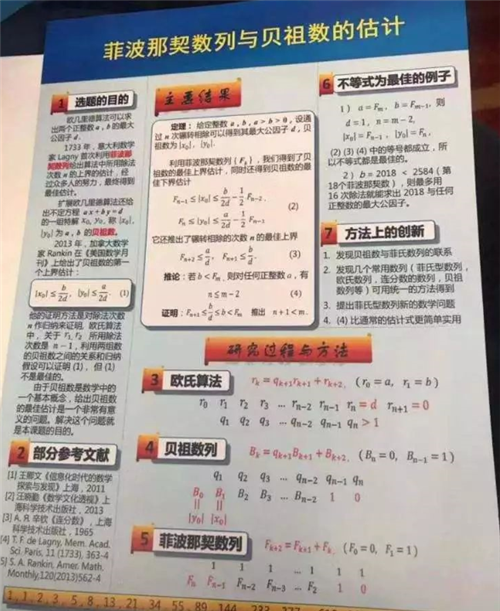 菲波那契数列与贝祖数的估计
1 选题的目的
欧几里德算法可以求
出两个正整数 a, b 的最大
公因子 d。
1733 年，意大利数学
家 Lagny 首次利用菲波那
契数列给出算法中所用除法
次数 n 的上界的估计，经
过众多人的努力，最终得到
最佳估计。
扩展欧几里德算法还给
出不定方程 ax + by = d
的一组特解 x₀, y₀，称 |x₀|,
|y₀| 为 a, b 的贝祖数。
2013 年，加拿大数学
家 Rankin 在《美国数学月
刊》上给出了贝祖数的第一
个上界估计：
|x₀| ≤ b/2d, |y₀| ≤ a/2d (1)
他的证明方法是对除法次数
n 作归纳来证明。欧氏算法
中，关于 r₁, r₂ 所用除法
次数是 n − 1，利用两组数
的贝祖数之间的关系和归纳
假设可以证明 (1)，但 (1)
不是最佳的。
由于贝祖数是数学中的
一个基本概念，给出贝祖数
的最佳估计是一个非常有意
义的问题。解决这个问题就
是本课题的目的。
2 部分参考文献
[1] 王鄂文《信息化时代的数学
探索与发现》上海，2011
[2] 汪晓勤《数学文化透视》上
海科学技术出版社，2013
[3] A. Я. 辛钦《连分数》，上海
科学技术出版社，1965
[4] T. F. de Lagny, Mem. Acad.
Sci. Paris, 11 (1733), 363-4
[5] S. A. Rankin, Amer. Math.
Monthly, 120(2013)562-4
主要结果
定理：给定整数 a, b, a > b > 0，设通
过 n 次辗转相除可以得到其最大公因子 d，贝
祖数为 |x₀|, |y₀|。
利用菲波那契数列 {Fₙ}，我们得到了贝
祖数的最佳上界估计，同时还得到贝祖数的最
佳下界估计
Fₙ₋₁ ≤ |x₀| ≤ b/2d − 1/2 Fₙ₋₂,
(2)
Fₙ ≤ |y₀| ≤ a/2d − 1/2 Fₙ₋₁.
它还推出了辗转相除的次数 n 的最佳上界
Fₙ₊₂ ≤ a/d, Fₙ₊₁ ≤ b/d. (3)
推论：若 b < Fₘ，则对任何正整数 a，有
n ≤ m − 2 (4)
证明：Fₙ₊₁ ≤ b/d ≤ b < Fₘ 推出 n + 1 < m.
研究过程与方法
3 欧氏算法 rₖ = qₖ₊₁rₖ₊₁ + rₖ₊₂, (r₀ = a, r₁ = b)
r₀ r₁ r₂ r₃ … rₙ₋₂ rₙ₋₁ rₙ = d rₙ₊₁ = 0
q₁ q₂ q₃ … qₙ₋₂ qₙ₋₁ qₙ > 1
4 贝祖数列 Bₖ = qₖ₊₁Bₖ₊₁ + Bₖ₊₂, (Bₙ = 0, Bₙ₋₁ = 1)
q₁ q₂ q₃ … qₙ₋₂ qₙ₋₁ qₙ
B₀ B₁ B₂ B₃ … Bₙ₋₂ 1 0
|| ||
|y₀| |x₀|
5 菲波那契数列 Fₖ₊₂ = Fₖ₊₁ + Fₖ, (F₀ = 0, F₁ = 1)
1 1 1 … 1 1 1
Fₙ Fₙ₋₁ Fₙ₋₂ Fₙ₋₃ … F₂ 1 0
6 不等式为最佳的例子
1) a = Fₘ, b = Fₘ₋₁, 则
d = 1, n = m − 2,
|x₀| = Fₙ₋₁, |y₀| = Fₙ.
(2) (3) (4) 中的等号都成立，所
以不等式都是最佳的。
2) b = 2018 < 2584 (第
18个菲波那契数)，则最多用
16 次除法就能求出 2018 与任何
正整数的最大公因子。
7 方法上的创新
1. 发现贝祖数与菲氏数列的联系
2. 发现几个常用数列（菲氏型数列，
欧氏数列，连分数的数列，贝祖
数列等）可用统一的方法得到
3. 提出菲氏型数列新的数学问题
4. (4) 比通常的估计式更简单实用
1, 1, 2, 3, 5, 8, 13, 21, 34, 55, 89, 144, 233